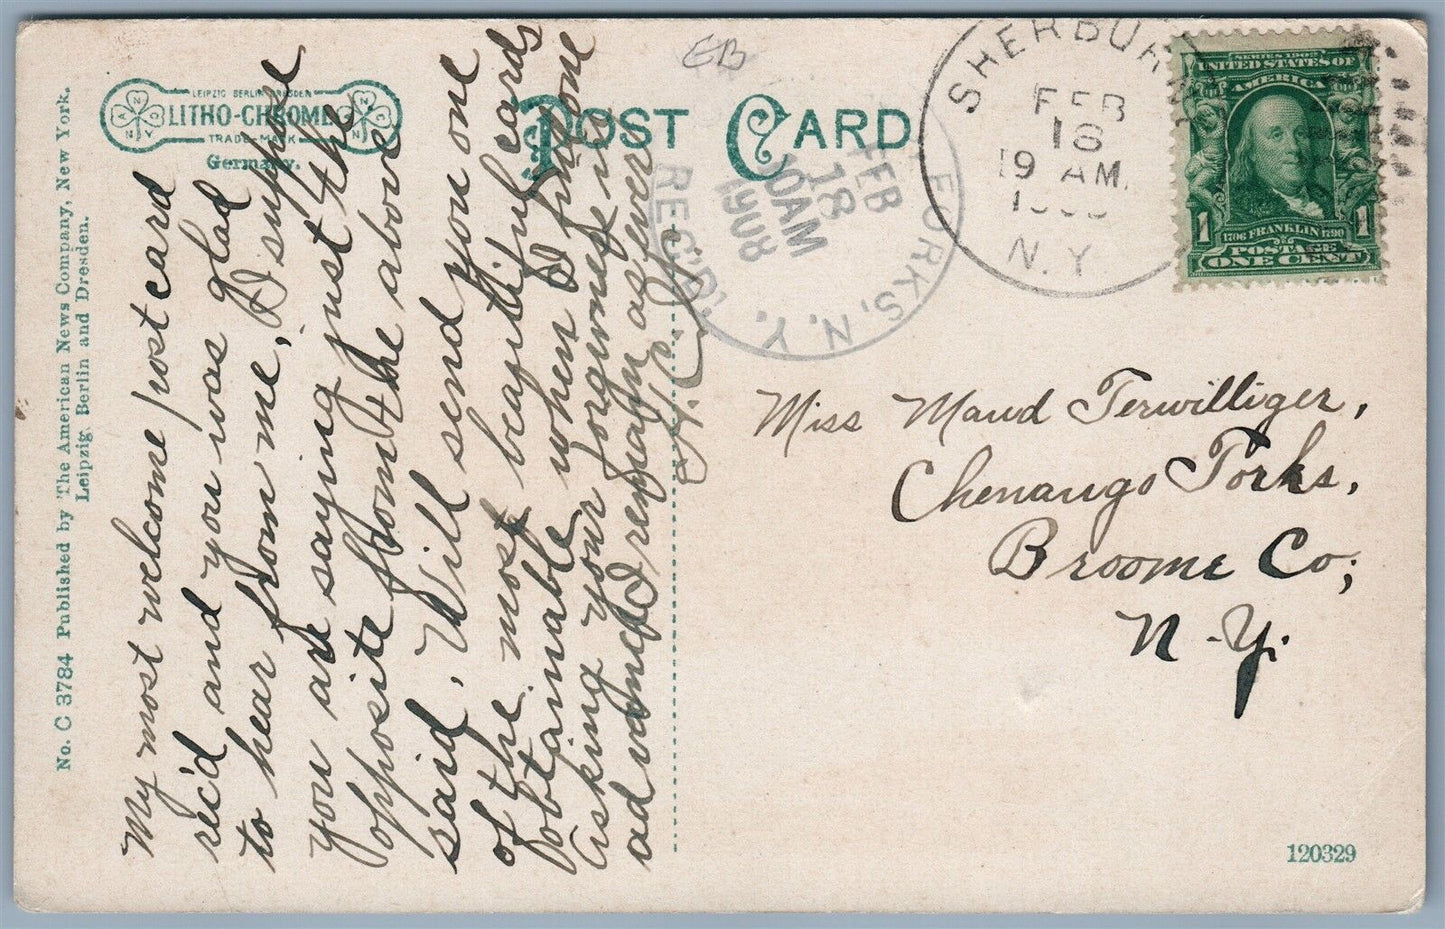 No. C 3784 Published by The American News Company, New York.
Leipzig, Berlin and Dresden.
LEIPZIG BERLIN DRESDEN
LITHO-CHROME
TRADE MARK
Germany.
POST CARD
EB
SHERBURN
FEB
18
9 AM.
N.Y.
FORKS, N.Y.
REC'D.
FEB
18
10AM
1908
SERIES 1902
UNITED STATES OF
AMERICA
1 1
1706 FRANKLIN 1790
POSTAGE
ONE CENT
My most welcome postcard
rec'd and you was glad
to hear from me, I suppose
you are saying just the
opposite from the above
said. Will send you one
of the most beautiful cards
obtainable when I find one
Asking your forgiveness in
advance I remain as ever
Miss Maud Terwilliger,
Chenango Forks,
Broome Co;
N.Y.
120329